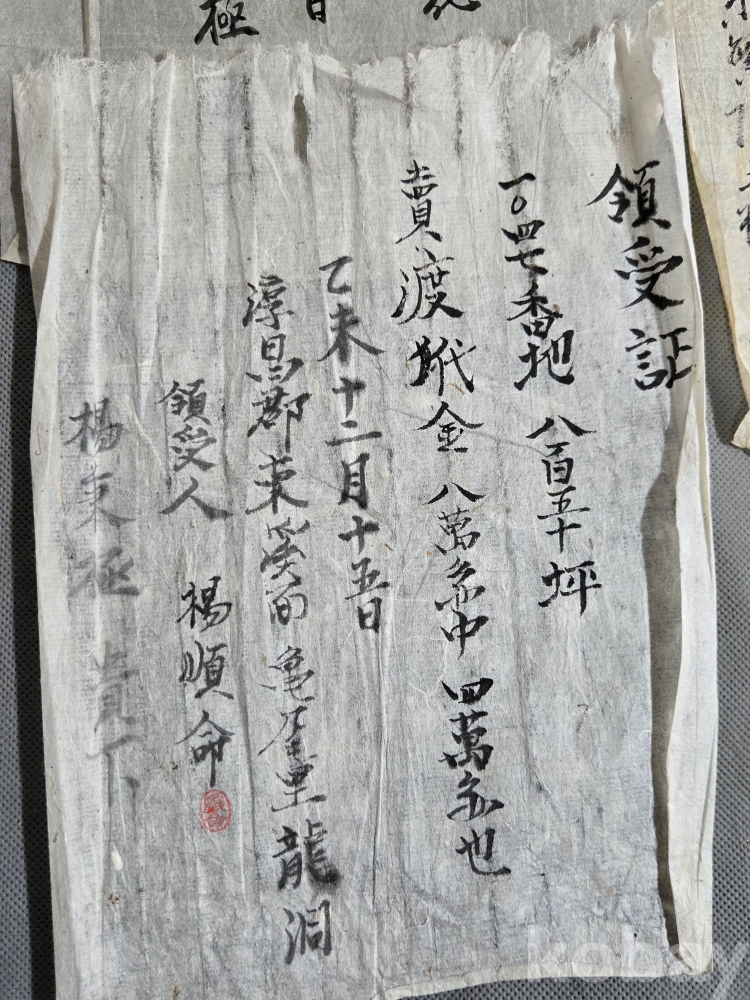 領受証
一〇四七番地 八百五十坪
賣渡代金 八萬 中 四萬 也
乙未十二月十五日
淳昌郡東溪面龜 里龍洞
領受人 楊順命
楊東極 貴下
極
kobay